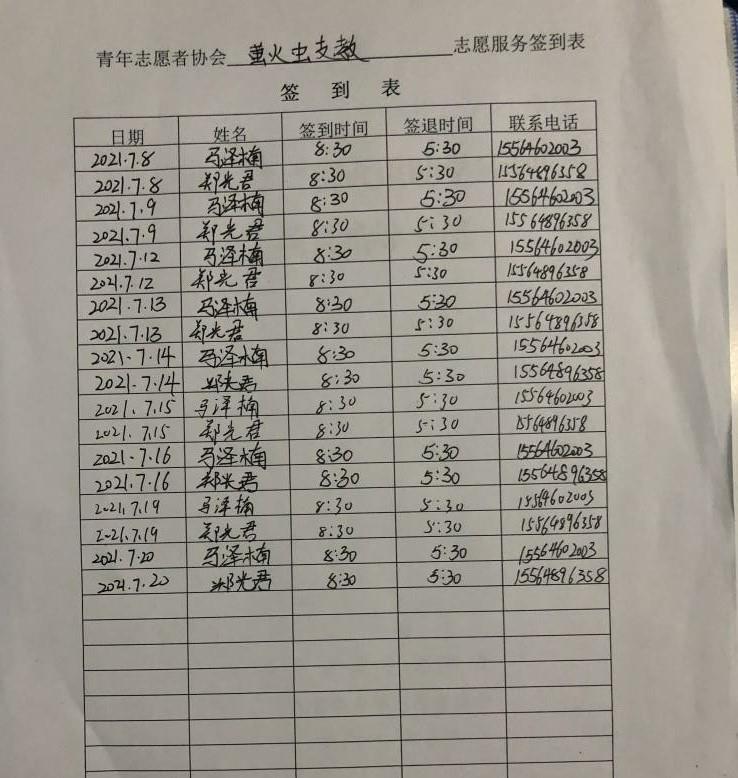 青年志愿者协会 萤火虫支教 志愿服务签到表
签 到 表
日期 姓名 签到时间 签退时间 联系电话
2021.7.8 马泽楠 8:30 5:30 15564602003
2021.7.8 郑光君 8:30 5:30 15564896358
2021.7.9 马泽楠 8:30 5:30 15564602003
2021.7.9 郑光君 8:30 5:30 15564896358
2021.7.12 马泽楠 8:30 5:30 15564602003
2021.7.12 郑光君 8:30 5:30 15564896358
2021.7.13 马泽楠 8:30 5:30 15564602003
2021.7.13 郑光君 8:30 5:30 15564896358
2021.7.14 马泽楠 8:30 5:30 15564602003
2021.7.14 郑光君 8:30 5:30 15564896358
2021.7.15 马泽楠 8:30 5:30 15564602003
2021.7.15 郑光君 8:30 5:30 15564896358
2021.7.16 马泽楠 8:30 5:30 15564602003
2021.7.16 郑光君 8:30 5:30 15564896358
2021.7.19 马泽楠 8:30 5:30 15564602003
2021.7.19 郑光君 8:30 5:30 15564896358
2021.7.20 马泽楠 8:30 5:30 15564602003
2021.7.20 郑光君 8:30 5:30 15564896358